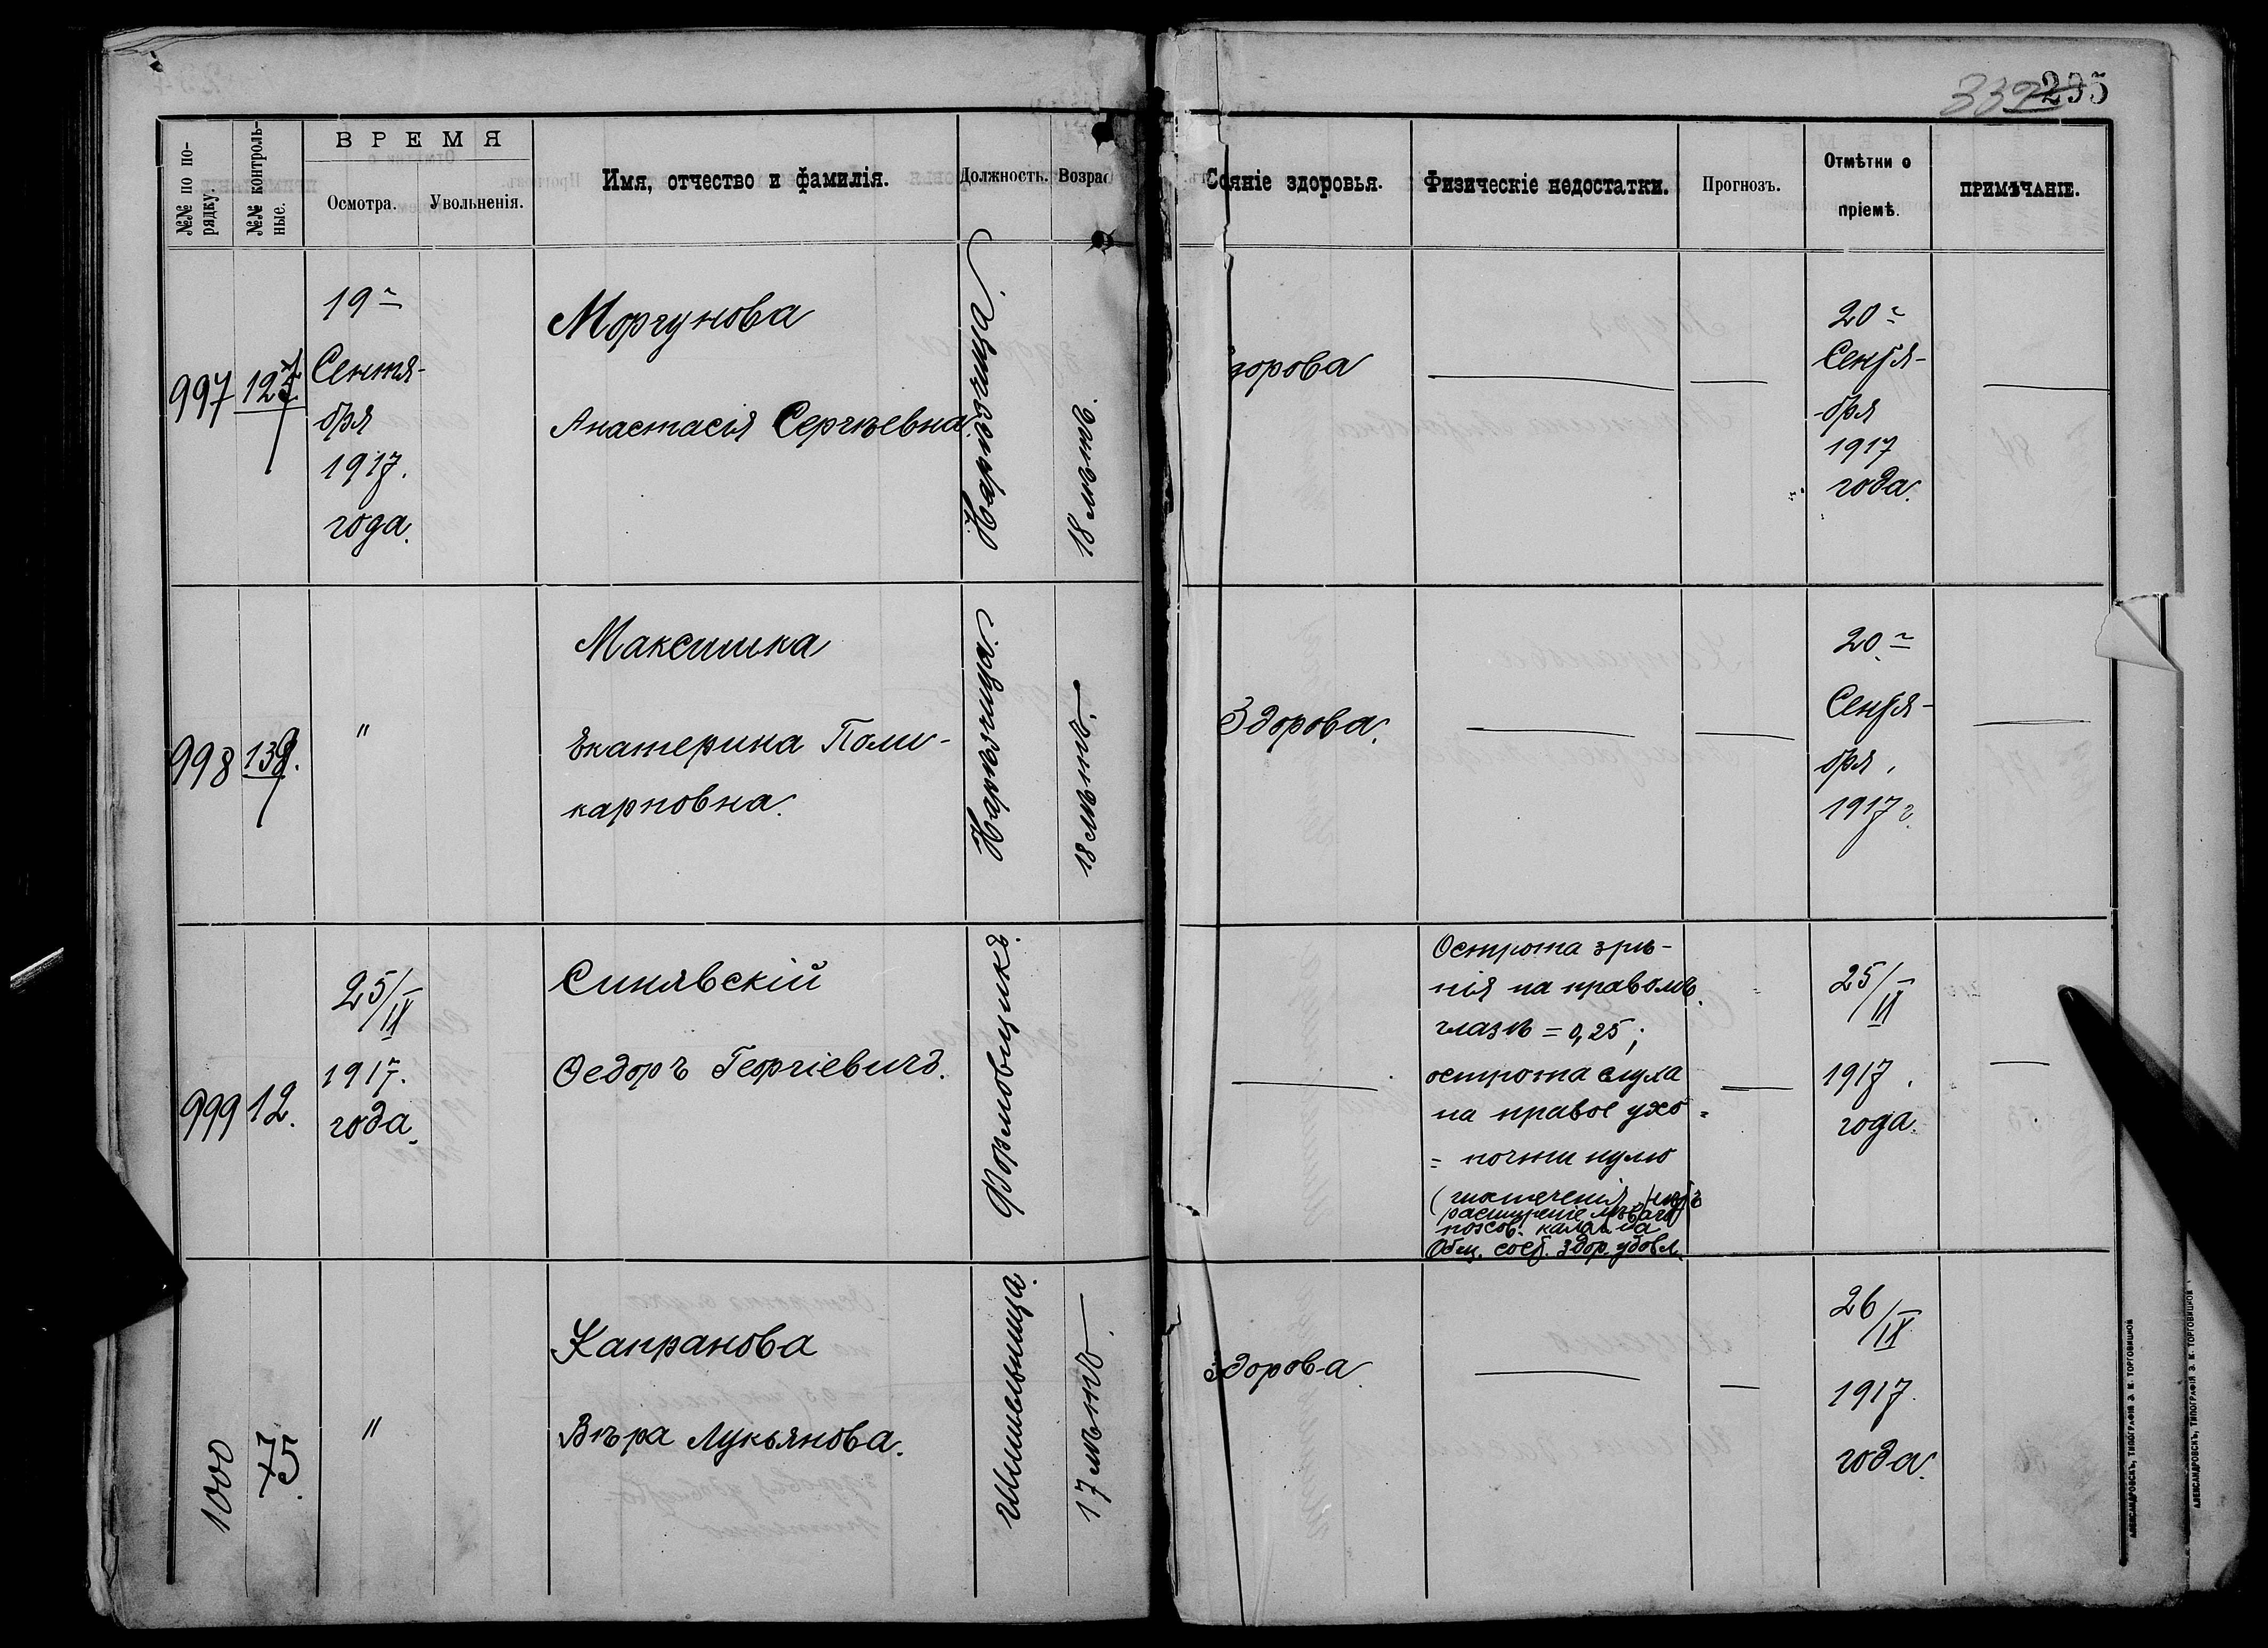 339 235
№№ по по-
рядку.
№№ контроль-
ные.
ВРЕМЯ
Осмотра.
Увольненія.
Имя, отчество и фамилія.
Должность.
Возрас
Со
яніе здоровья.
Физическіе недостатки.
Прогнозъ.
Отмѣтки о
пріемѣ.
ПРИМѢЧАНІЕ.
997
19
Сентя-
бря
1917.
года.
Моргунова
Анастасія Сергѣевна
Нарѣзчица.
18 лѣтъ.
дорова
20
Сентя-
бря
1917
года.
998
138.
"
Максишка
Екатерина Поли-
карповна.
Нарѣзчица.
18 лѣтъ.
Здорова.
20
Сентя-
бря.
1917 г.
999
12.
25/IX
1917.
года
Синявскій
Ѳедоръ Георгіевичъ.
Формовщикъ.
Острота зрѣ-
нія на правомъ
глазѣ = 0,25;
острота слуха
на правое ухо =
= почти нулю
расширеніе лѣваго
пахов. канала
Общ. сост. здор. удовл.
25/IX
1917.
года.
1000
75.
"
Капранова
Вѣра Лукьянова.
Шишельница.
17 лѣтъ.
здорова.
26/IX
1917.
года.
АЛЕКСАНДРОВСКЪ, ТИПОГРАФІЯ Э. И. ТОРГОВИЦКОВ
АЛЕКСАНДРОВСКЪ, ТИПОГРАФІЯ Э. И. ТОРГОВИЦКОВ